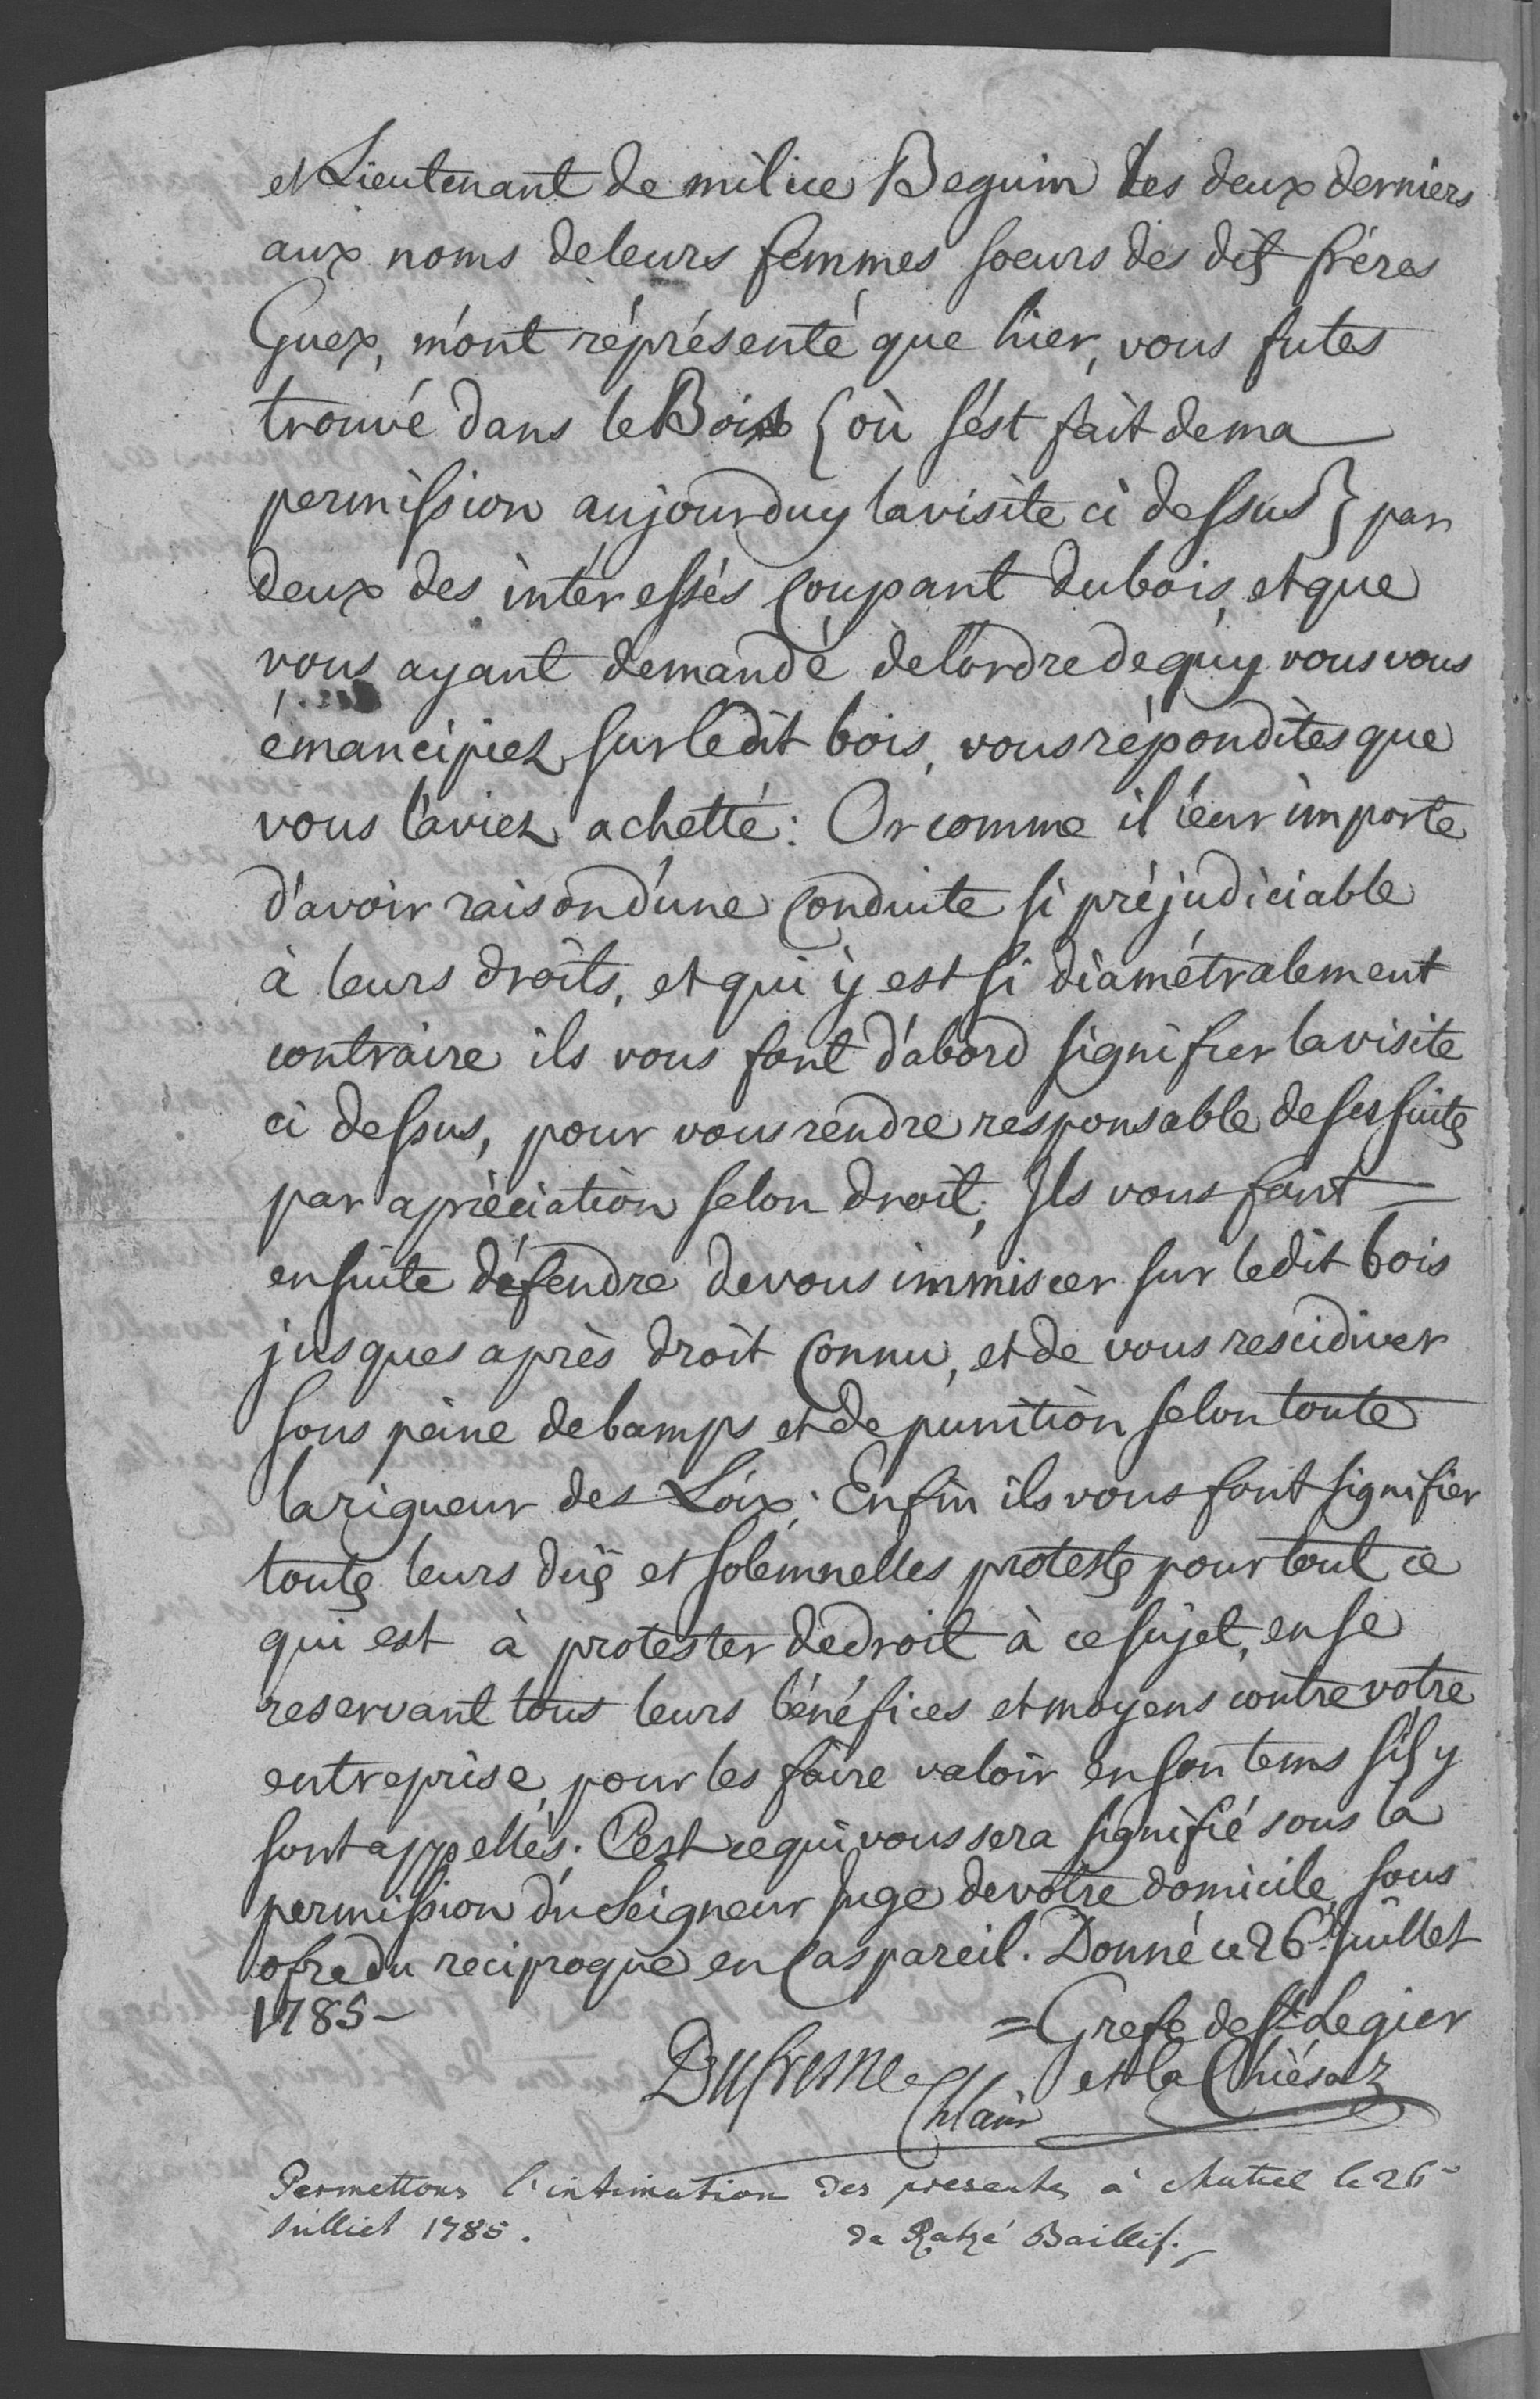 et Lieutenant de milice Beguin les deux derniers
aux noms de leurs femmes soeurs des dits fréres
Guex, m'ont réprésenté que hier, vous futes
trouvé dans le Bois { où s'est fait de ma
permission aujourduy la visite ci dessus } par
deux des intéressés coupant du bois, et que
vous ayant demandé de l'ordre de quy vous vous
émancipiez sur le dit bois, vous répondites que
vous l'aviez achetté : Or comme il leur importe
d'avoir raison d'une conduite si préjudiciable
à leurs droits, et qui y est si diamétralement
contraire ils vous font d'abord signifier la visite
ci dessus, pour vous rendre responsable de ses suites
par apréciation selon droit ; Ils vous font
ensuite défendre de vous immiscer sur le dit bois
jusques après droit connu, et de vous rescidiver
sous peine de bamps et de punition selon toute
la rigueur des Loix ; Enfin ils vous font signifier
toutes leurs dües et solemnelles protestes pour tout ce
qui est à protester de droit à ce sujet, en se
reservant tous leurs bénéfices et moyens contre votre
entreprise, pour les faire valoir en son tems s'ils y
sont appellés ; C'est ce qui vous sera signifié sous la
permission du Seigneur Juge de votre domicile, sous
ofre du reciproque en cas pareil. Donné ce 26e Juillet
1785 -
= Grefe de St Legier
et la Chiésaz
Dufresne Chlain
Permettons l'intimation des presentes à le 26e
Juilliet 1785.
de Ratzé Baillif.